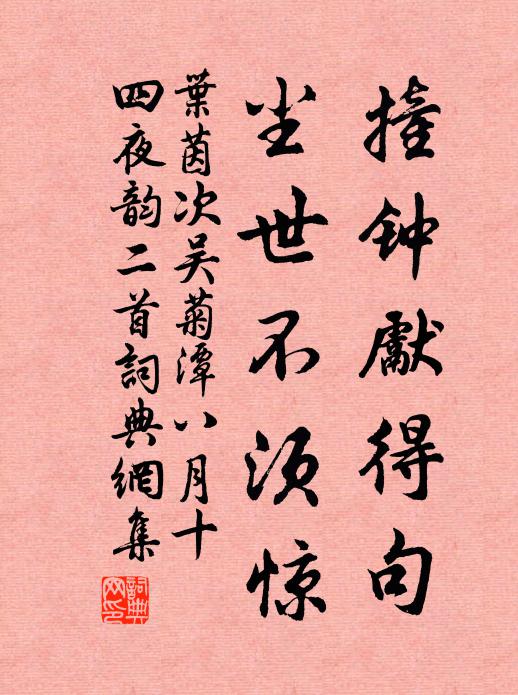 撞钟獻得句
尘世不须惊
葉茵次吴菊潭八月十
四夜韵二首詞典網集
詞典网印